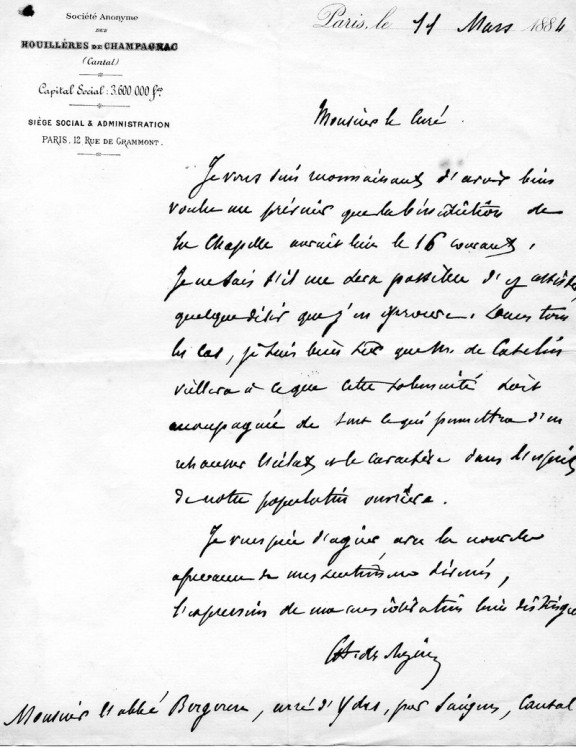 Société Anonyme
DES
HOUILLÈRES DE CHAMPAGNAC
(Cantal)
Capital Social : 3.600.000 fcs
SIÈGE SOCIAL & ADMINISTRATION
PARIS, 12 RUE DE GRAMMONT.
Paris, le 11 Mars 1884
Monsieur le Curé.
Je vous suis reconnaissant d'avoir bien
voulu me prévenir que la bénédiction de
la Chapelle aurait lieu le 16 courant.
Je ne sais s'il me sera possible d'y assister,
quelque désir que j'en éprouve. Dans tous
les cas, je suis bien sûr que Mr. de
veillera à ce que cette solennité soit
accompagnée de tout ce qui permettra d'en
rehausser l'éclat et le caractère dans l'esprit
de notre population ouvrière.
Je vous prie d'agréer avec la nouvelle
assurance de mes sentiments dévoués,
l'expression de ma considération bien distinguée
Monsieur l'abbé, curé d'Ydes, par Saignes, Cantal